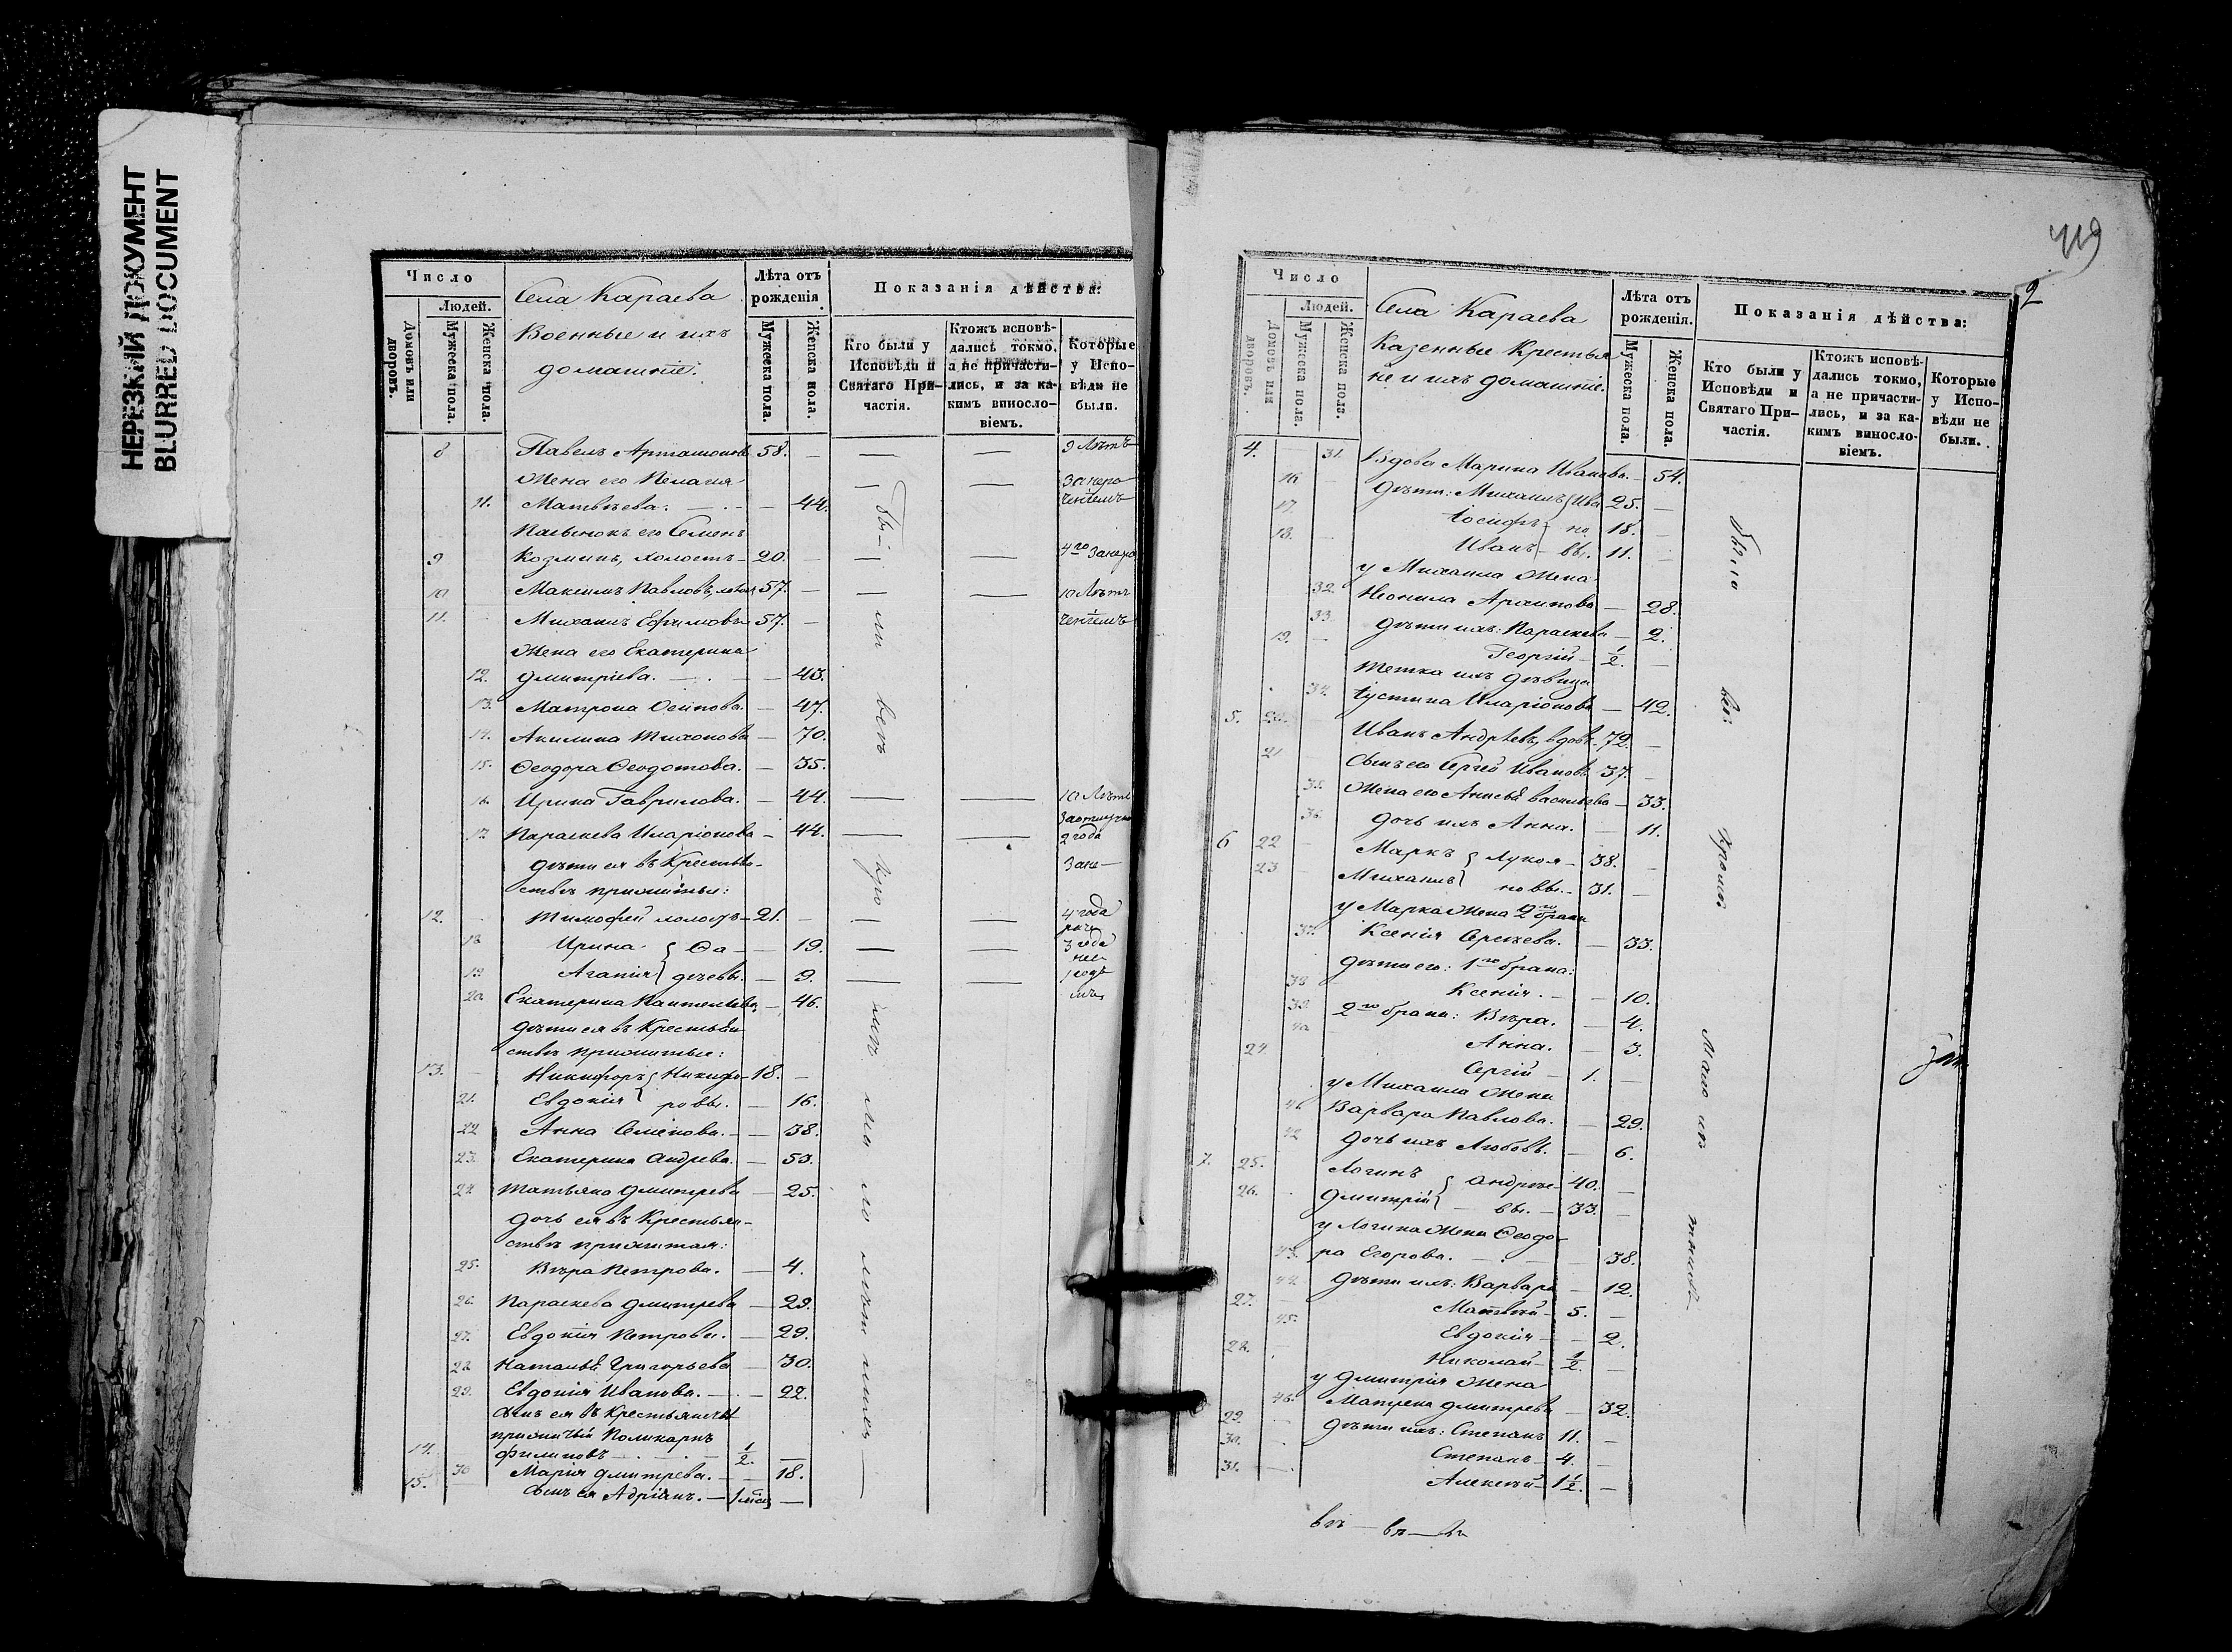 НЕРЕЗКИЙ ДОКУМЕНТ
BLURRED DOCUMENT
Число
Людей.
Домовъ или дворовъ.
Мужеска пола.
Женска пола.
Села Караева
Военные и ихъ
домашніе.
Лѣта отъ рожденія
Мужеска пола.
Женска пола.
Показанія дѣйства:
Кто были у Исповѣди и Святаго Причастія.
Ктожъ исповѣ-
дались токмо,
а не причасти-
лись, и за ка-
кимъ виносло-
віемъ.
Которые
у Испо-
вѣди не
были.
8 Павелъ Артамоновъ 58. — — — 9 Лѣтъ
Жена его Пелагія
11. Матвѣева. — 44.
Пасынокъ его Семенъ
9 Козминъ, холостъ — 20. —
10 Максимъ Павловъ, 57. — 10 Лѣтъ
11. Михаилъ Ефимовъ 57. —
Жена его Екатерина
12. Дмитріева. — 43.
13. Матрона Осипова. — 47.
14. Акилина Тихонова — 70.
15. Ѳеодора Ѳеодотова. — 35.
16. Ирина Гаврилова. — 44. — — 10 Лѣтъ
17 Параскева Иларіонова — 44. — — 2 года
Дѣти ея въ Крестьян-
ствѣ прижитыя:
12. Тимофей холостъ — 21. — — — 4 года
18 Ирина Ѳа — 19. — — 3 года
19 Агапія дѣевы. — 9. — — 1 годъ
20 Екатерина Пантелѣева — 46.
Дѣти ея въ Крестьян
ствѣ прижитые:
13. Никифоръ Никифо — 18. —
21. Евдокія ровы. — 16.
22 Анна Семенова. — 38.
23. Екатерина Андреева. — 53.
24. Татьяна Дмитрева — 25.
Дочь ея въ Крестьян-
ствѣ прижитая:
25. Вѣра Петрова. — 4.
26. Параскева Дмитрева — 29.
27. Евдокія Петрова. — 29.
28 Наталья Григорьева — 30.
29. Евдокія Иванова. — 22.
Сынъ ея въ Крестьянствѣ
прижитый Поликарпъ
14. Филиповъ — 1/2. —
30 Марія Дмитрева. — 18.
15. Сынъ ея Адріанъ. —
419
2
Число
Людей.
Домовъ или дворовъ.
Мужеска пола.
Женска пола.
Села Караева
Казенные Крестья
не и ихъ домашніе.
Лѣта отъ рожденія.
Мужеска пола.
Женска пола.
Показанія дѣйства:
Кто были у
Исповѣди и
Святаго При-
частія.
Ктожъ исповѣ-
дались токмо,
а не причасти-
лись, и за ка-
кимъ винosло-
віемъ.
Которые
у Испо-
вѣди не
были.
4. 31. Вдова Марина Иванова. — 54.
16 Дѣти: Михаилъ Ива 25. —
17. Іосифъ — но 18. —
18. Иванъ — вы. 11. —
у Михаила Жена
32. Неонила Архипова — 28.
33. Дѣти ихъ: Параскева — 2.
19. — Георгій — 1/2. —
Тетка ихъ дѣвица
34. Іустина Иларіонова — 42.
5. 20. Иванъ Андрѣевъ, вдовъ. 72. —
21 Сынъ его Сергій Ивановъ 37. —
35. Жена его Анисья Васильева — 33.
36. Дочь ихъ Анна. — 11.
6 22 Маркъ Лукоя — 38. —
23 Михаилъ новы. — 31. —
у Марка Жена 2го брака
37. Ксенія Сергѣева. — 33.
Дѣти его: 1го брака:
38 Ксенія. — 10.
39 2го брака: Вѣра. — 4.
40 Анна. — 3.
24 Сергій — 1. —
у Михаила Жена
41 Варвара Павлова. — 29.
42 Дочь ихъ Любовь. — 6.
7. 25. Логинъ Андрѣе — 40. —
26. Дмитрій вы. — 33. —
у Логина Жена Ѳеодо
43. ра Егорова. — 38.
44. Дѣти ихъ: Варвара — 12.
27. Матвѣй — 5. —
45. Евдокія — 2.
28. Николай — 1/2. —
у Дмитрія Жена
46. Матрена Дмитрева — 32.
29. Дѣти ихъ: Степанъ 11. —
30. Степанъ — 4. —
31. Алексѣй — 1 1/2. —